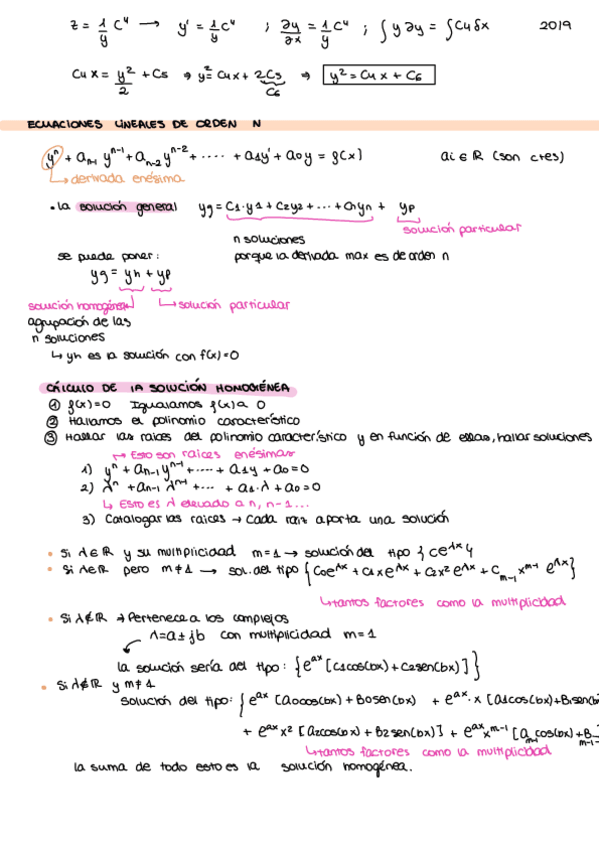 z = 1/y C4 → y' = 1/y C4 ; ∂y/∂x = 1/y C4 ; ∫ y ∂y = ∫ C4 δx 2019
C4 x = y²/2 + C5 → y² = C4x + 2C5 ⇒ y² = C4x + C6
C6
ECUACIONES LINEALES DE ORDEN N
yⁿ + a_{n-1} y^{n-1} + a_{n-2} y^{n-2} + ···· + a1y' + a0y = f(x) ai ∈ ℝ (son ctes)
↳ derivada enésima
• la solución general yg = C1·y1 + C2y2 + ... + Cnyn + yp
solución particular
n soluciones
se puede poner: porque la derivada max es de orden n
yg = yh + yp
solución homogénea ↳ solución particular
agrupación de las
n soluciones
↳ yh es la solución con f(x)=0
CÁLCULO DE LA SOLUCIÓN HOMOGÉNEA
① f(x)=0 Igualamos f(x) a 0
② Hallamos el polinomio característico
③ Hallar las raíces del polinomio característico y en función de ellas, hallar soluciones
↦ Esto son raíces enésimas
1) yⁿ + a_{n-1} y^{n-1} + ···· + a1y + a0 = 0
2) λⁿ + a_{n-1} λ^{n-1} + ··· + a1·λ + a0 = 0
↳ Esto es λ elevado a n, n-1...
3) Catalogar las raíces → Cada raíz aporta una solución
• Si λ∈ℝ y su multiplicidad m=1 → solución del tipo {ce^{λx}}
• Si λ∈ℝ pero m≠1 → sol. del tipo {C0e^{λx} + C1xe^{λx} + C2x²e^{λx} + C_{m-1} x^{m-1} e^{λx}}
↳ tantos factores como la multiplicidad
• Si λ∉ℝ → Pertenece a los complejos
λ=a±jb con multiplicidad m=1
la solución sería del tipo: {e^{ax} [C1cos(bx) + C2sen(bx)]}
• Si λ∉ℝ y m≠1
solución del tipo: {e^{ax} [A0cos(bx) + B0sen(bx) + e^{ax}·x [A1cos(bx) + B1sen(bx)
+ e^{ax}x² [A2cos(bx) + B2sen(bx)] + e^{ax}x^{m-1} [A_{m-1} cos(bx) + B_{m-1}
↳ tantos factores como la multiplicidad
la suma de todo esto es la solución homogénea.